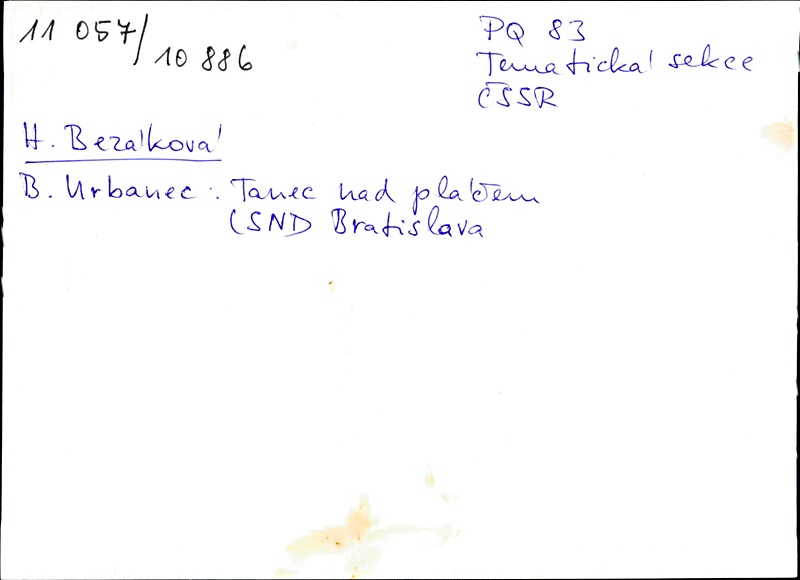 11 057/
10 886
PQ 83
Tematická sekce
ČSSR
H. Bezáková
B. Urbanec: Tanec nad plačem
(SND Bratislava